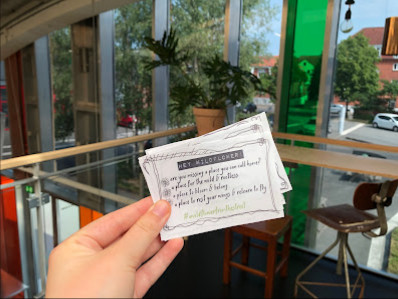 HEY WILDFLOWER
are you missing a place you can call home?
a place for the wild & restless
a place to bloom & belong
a place to rest your wings & return to fly